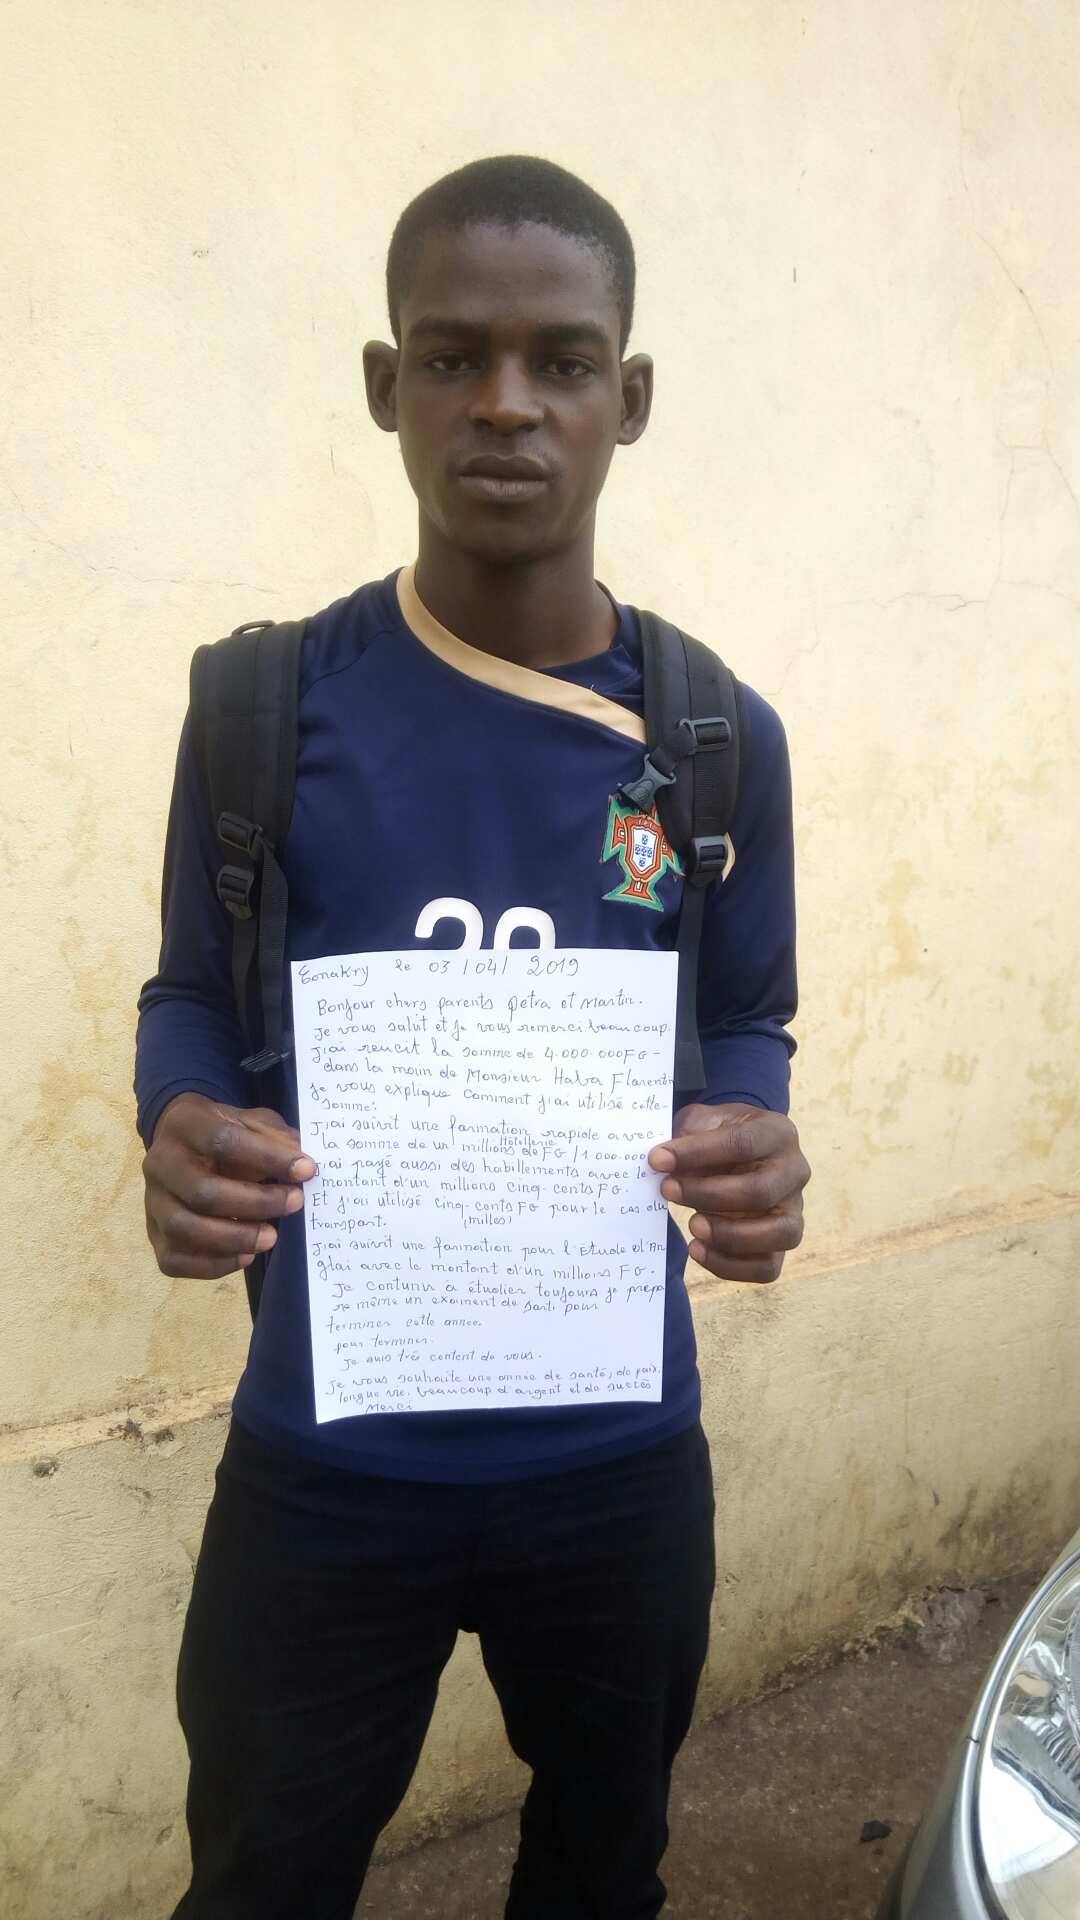 20
Conakry le 03/04/2019
Bonjour chers parents petra et Martin.
Je vous salut et je vous remerci beaucoup.
J'ai reucit la somme de 4.000.000FG-
dans la main de Monsieur Haba Florentin
Je vous explique comment j'ai utilisé cette-
somme:
J'ai suivit une formation rapide avec-
Hôtellerie
la somme de un millions de FG/1000.000
J'ai payé aussi des habillements avec le
montant d'un millions cinq-cents FG.
Et j'ai utilisé cinq-cents FG pour le cas du
transport. (milles)
J'ai suivit une formation pour l'Étude d'An
glai avec le montant d'un millions FG.
Je contunir à étudier toujours je prepa
re même un exament de sorti pour
terminer cette année.
pour terminer.
Je suis très content de vous.
Je vous souhaite une année de santé, de paix,
longue vie, beaucoup d'argent et de succès
Merci